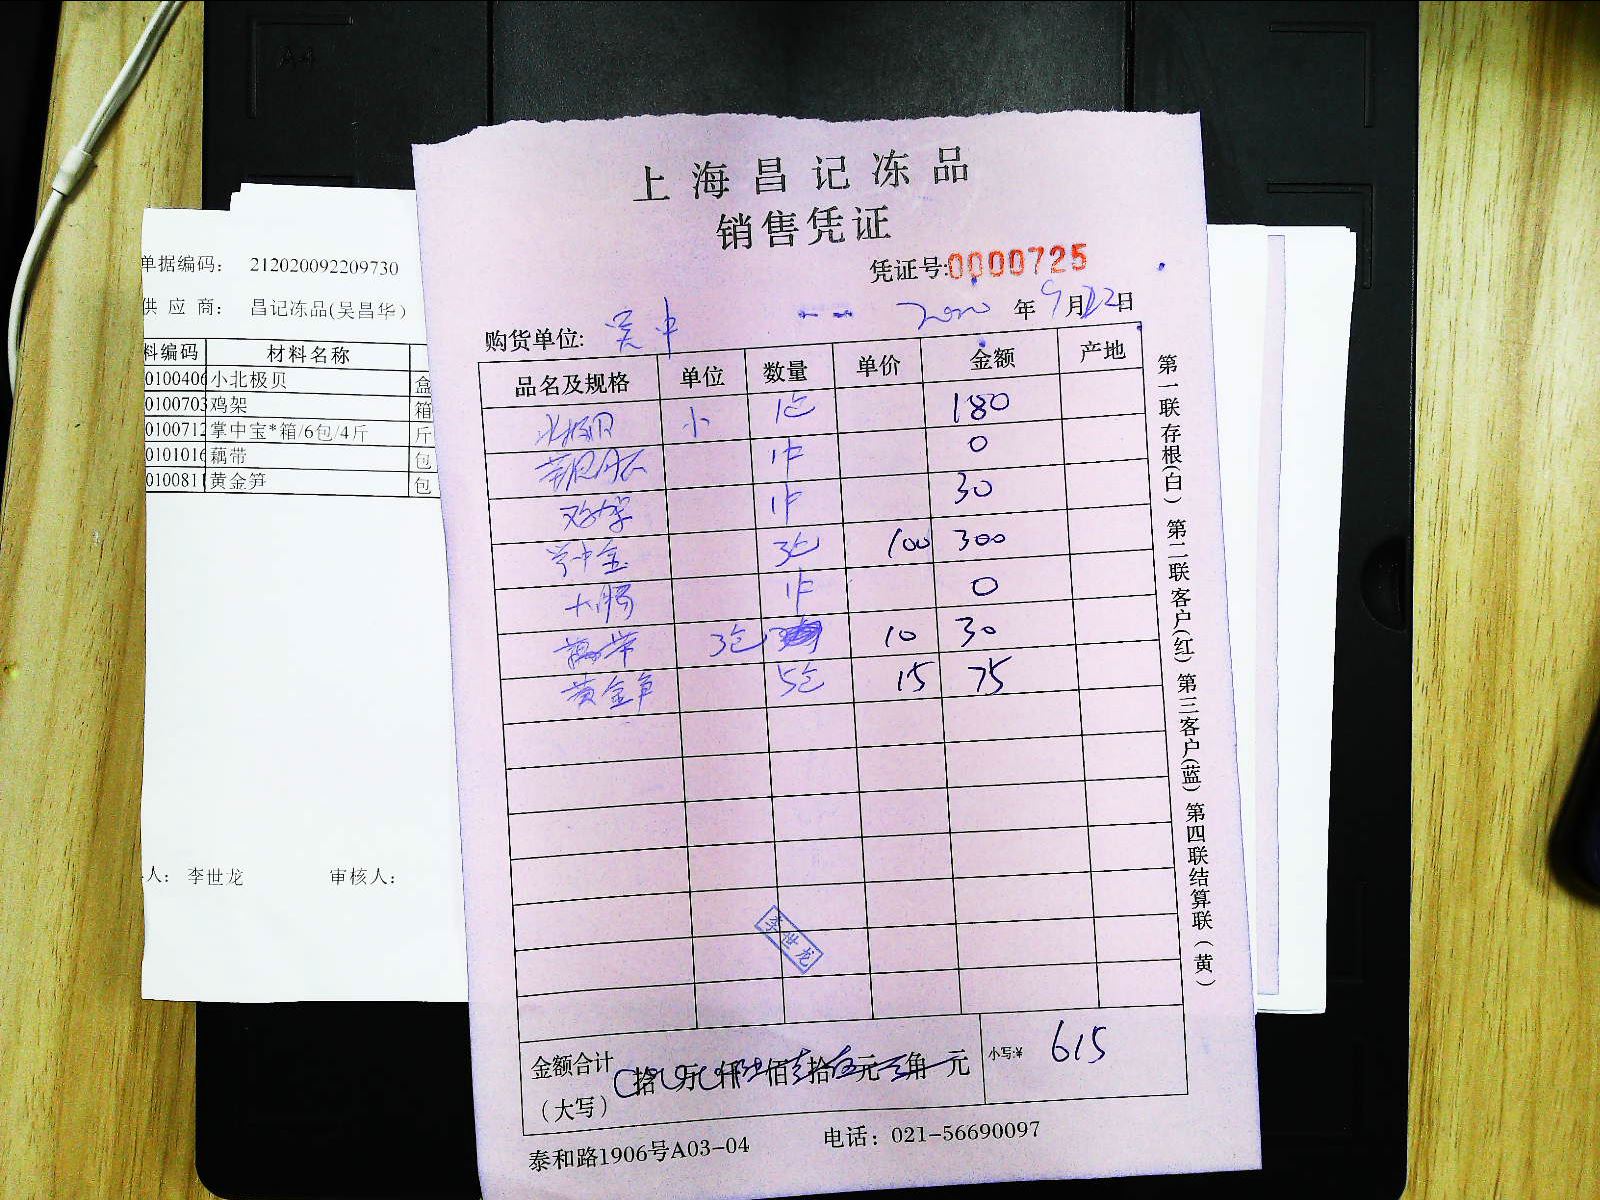 A4
单据编码： 212020092209730
供 应 商： 昌记冻品(吴昌华)
料编码 材料名称
0100406 小北极贝 盒
0100703 鸡架 箱
0100712 掌中宝*箱/6包/4斤 斤
0101016 藕带 包
010081 黄金笋 包
人： 李世龙 审核人：
上海昌记冻品
销售凭证
凭证号:0000725
购货单位: 吴中 2020 年 9 月 22 日
品名及规格 单位 数量 单价 金额 产地
北极贝 小 1包 180
1件 0
鸡架 1件 30
掌中宝 3包 100 300
大肠 1件 0
藕带 3包 10 30
黄金笋 5包 15 75
李世龙
金额合计 拾 万 仟 陆佰壹拾伍元 角 元
（大写）
小写:¥ 615
泰和路1906号A03-04 电话：021-56690097
第一联存根(白) 第二联客户(红) 第三客户(蓝) 第四联结算联（黄）